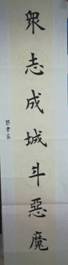 眾志成城斗惡魔